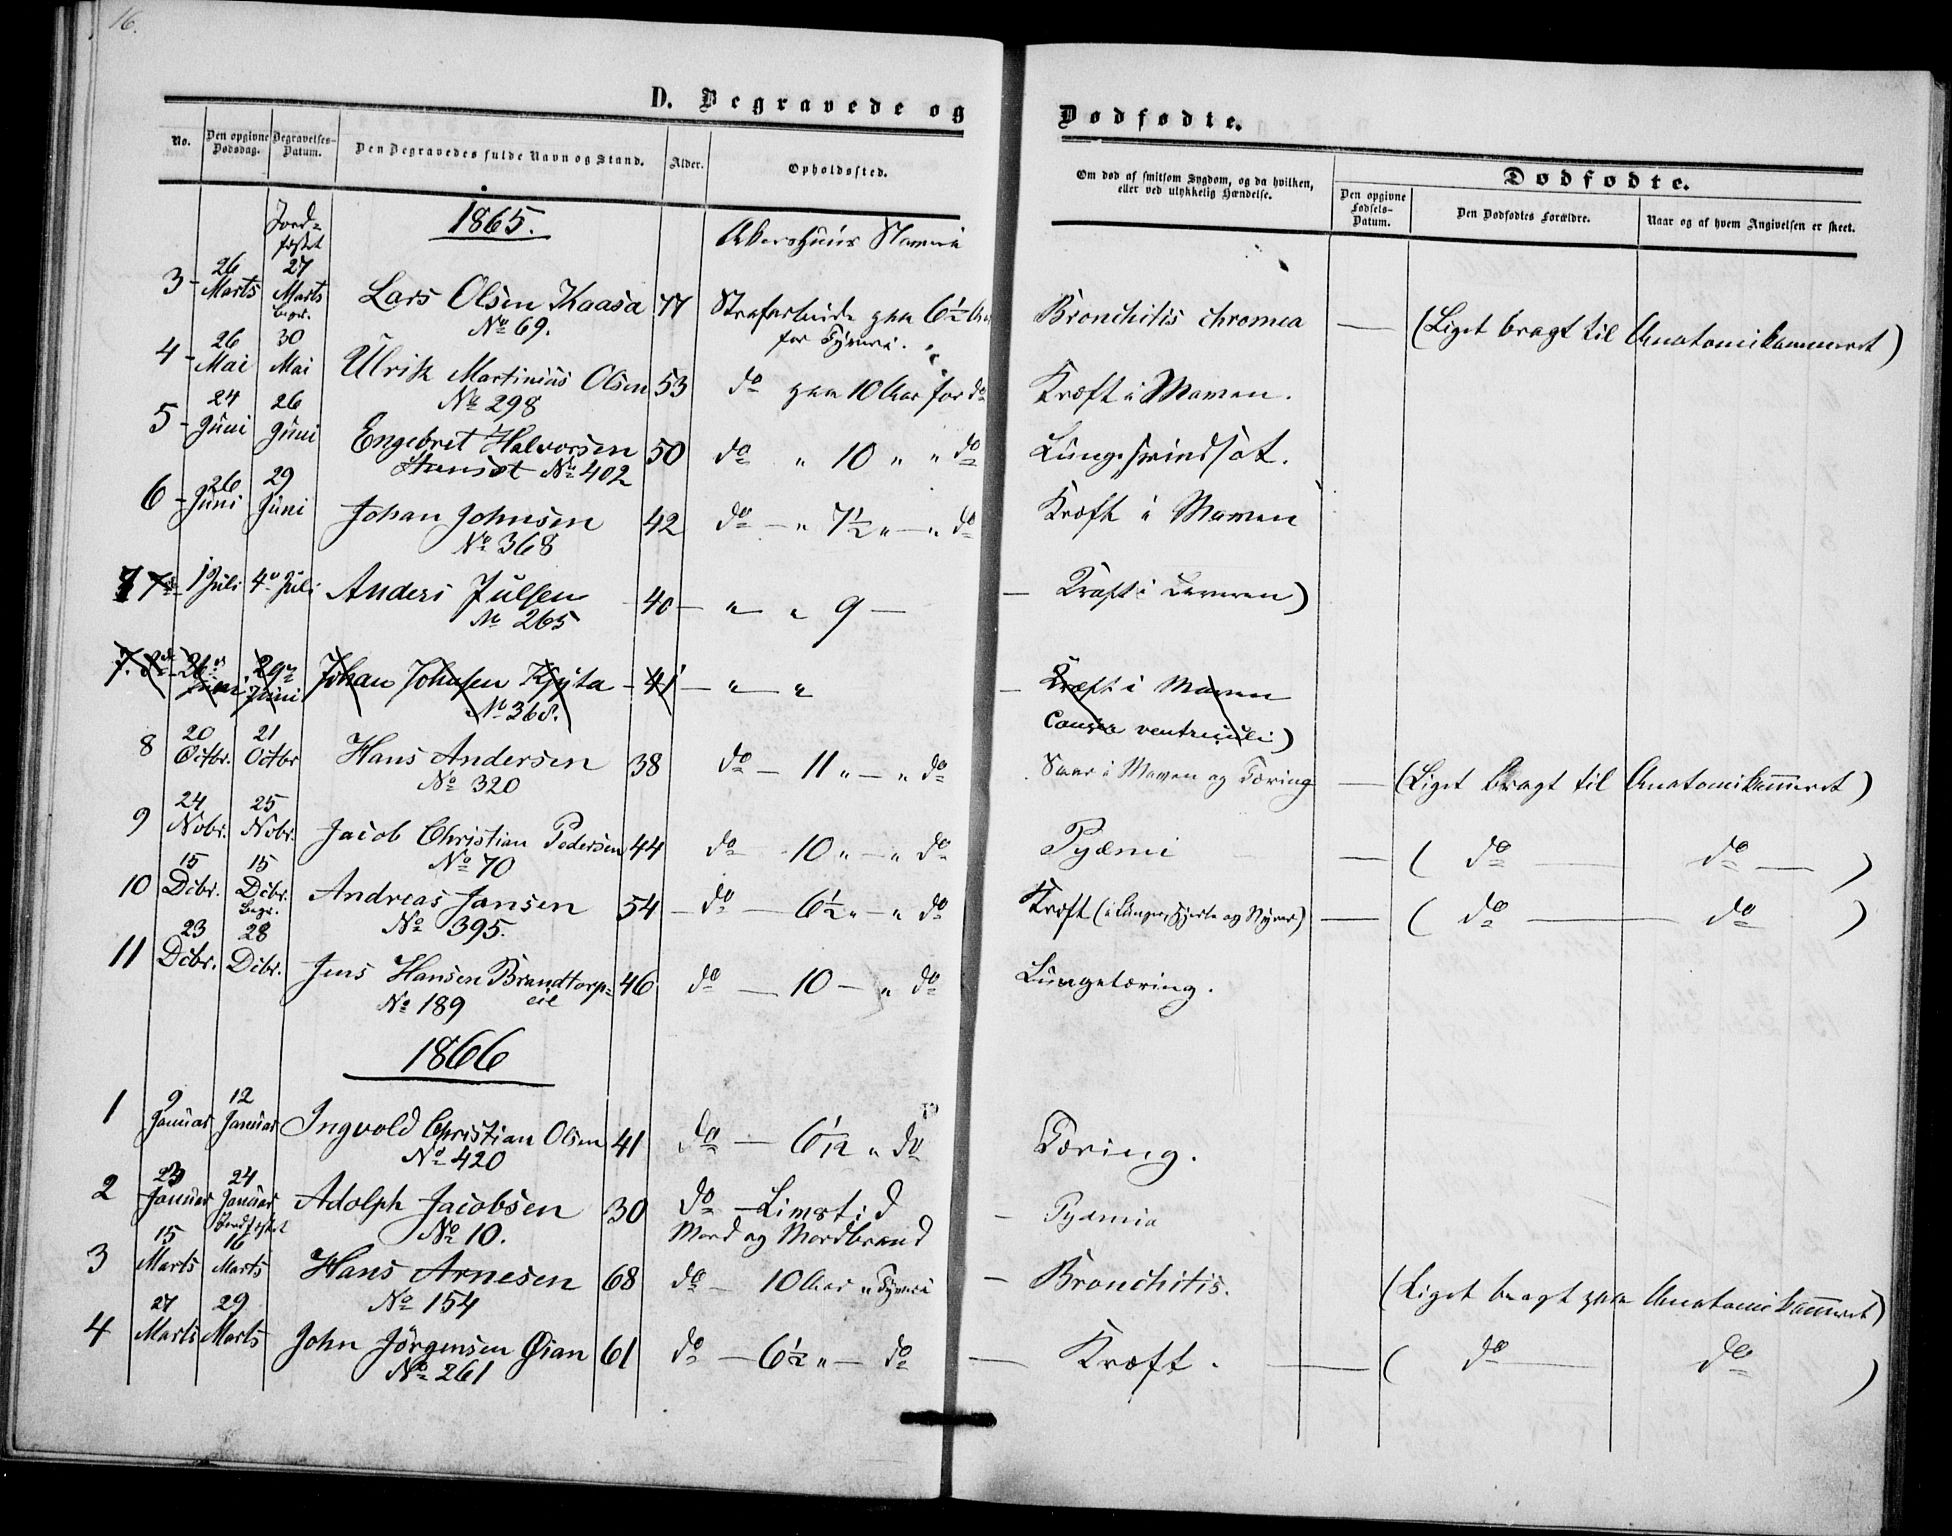 16.
D. Begravede og Dødfødte.
No. Den opgivne Dødsdag. Begravelses-Datum. Den Begravedes fulde Navn og Stand. Alder. Opholdssted. Om død af smitsom Sygdom, og da hvilken, eller ved ulykkelig Hændelse. Dødfødte.
Den opgivne Fødsels-Datum. Den Dødfødtes Forældre. Naar og af hvem Angivelsen er skeet.
Jord-
fæstet 1865. Akershuus Slaveri
3 - 26 Marts 27 Marts Lars Olsen Kaasa 77 Strafarbeide paa 6½ Aar Bronchitis chronica — (Liget bragt til Anatomikammeret)
begr. No 69. for Tyveri.
4 - 26 Mai 30 Mai Ulrik Martinius Olsen 53 do paa 10 Aar for do Kræft i Maven.
No 298
5 - 24 Juni 26 Juni Engebret Halvorsen 50 do " 10 " " do Lungesvindsot.
No 402
6 - 26 Juni 29 Juni Johan Johnsen 42 do — " 7½ " — " do Kræft i Maven
No 368
7 1 Juli 4 Juli Anders Julsen 40 — " — " 9 — — Kræft i Leveren)
No 265
7. 8 26 Juni 29 Juni Johan Johnsen Kjyta - 41 — " — " — Kræft i Maven
No 368. Cancer ventriculi)
8 20 Octbr. 21 Octbr Hans Andersen 38 do — 11 " — " do Saar i Maven og Tæring — (Liget bragt til Anatomikammeret)
No 320
9 24 Nobr. 25 Nobr. Jacob Christian Pedersen 44 do 10 " — " do Pyæmi — ( do — do — )
No 70
10 15 Dcbr. 15 Dcbr. Andreas Jansen 54 — do — 6½ " — " do Kræft (i Lunger, Hjerte og Nyrer) — ( do — do )
Begr. No 395.
11 23 Dcbr. 28 Dcbr. Jens Hansen Brandtorp- 46 do — 10 — " do Lungetæring.
No 189 eie
1866
1 9 Januar 12 Januar Ingvold Christian Olsen 41 do — 6½ " do Tæring.
No 420
2 23 Januar 24 Januar Adolph Jacobsen 30 do — Livstid — Pyæmia
Jordfæstet No 10. Mord og Mordbrand
3 15 Marts 16 Marts Hans Arnesen 68 do — 10 Aar " Tyveri — Bronchitis. (Liget bragt paa Anatomikammeret)
No 154
4 27 Marts 29 Marts John Jörgensen Øian 61 do — 6½ " — do — Kræft. — ( do — do )
No 261